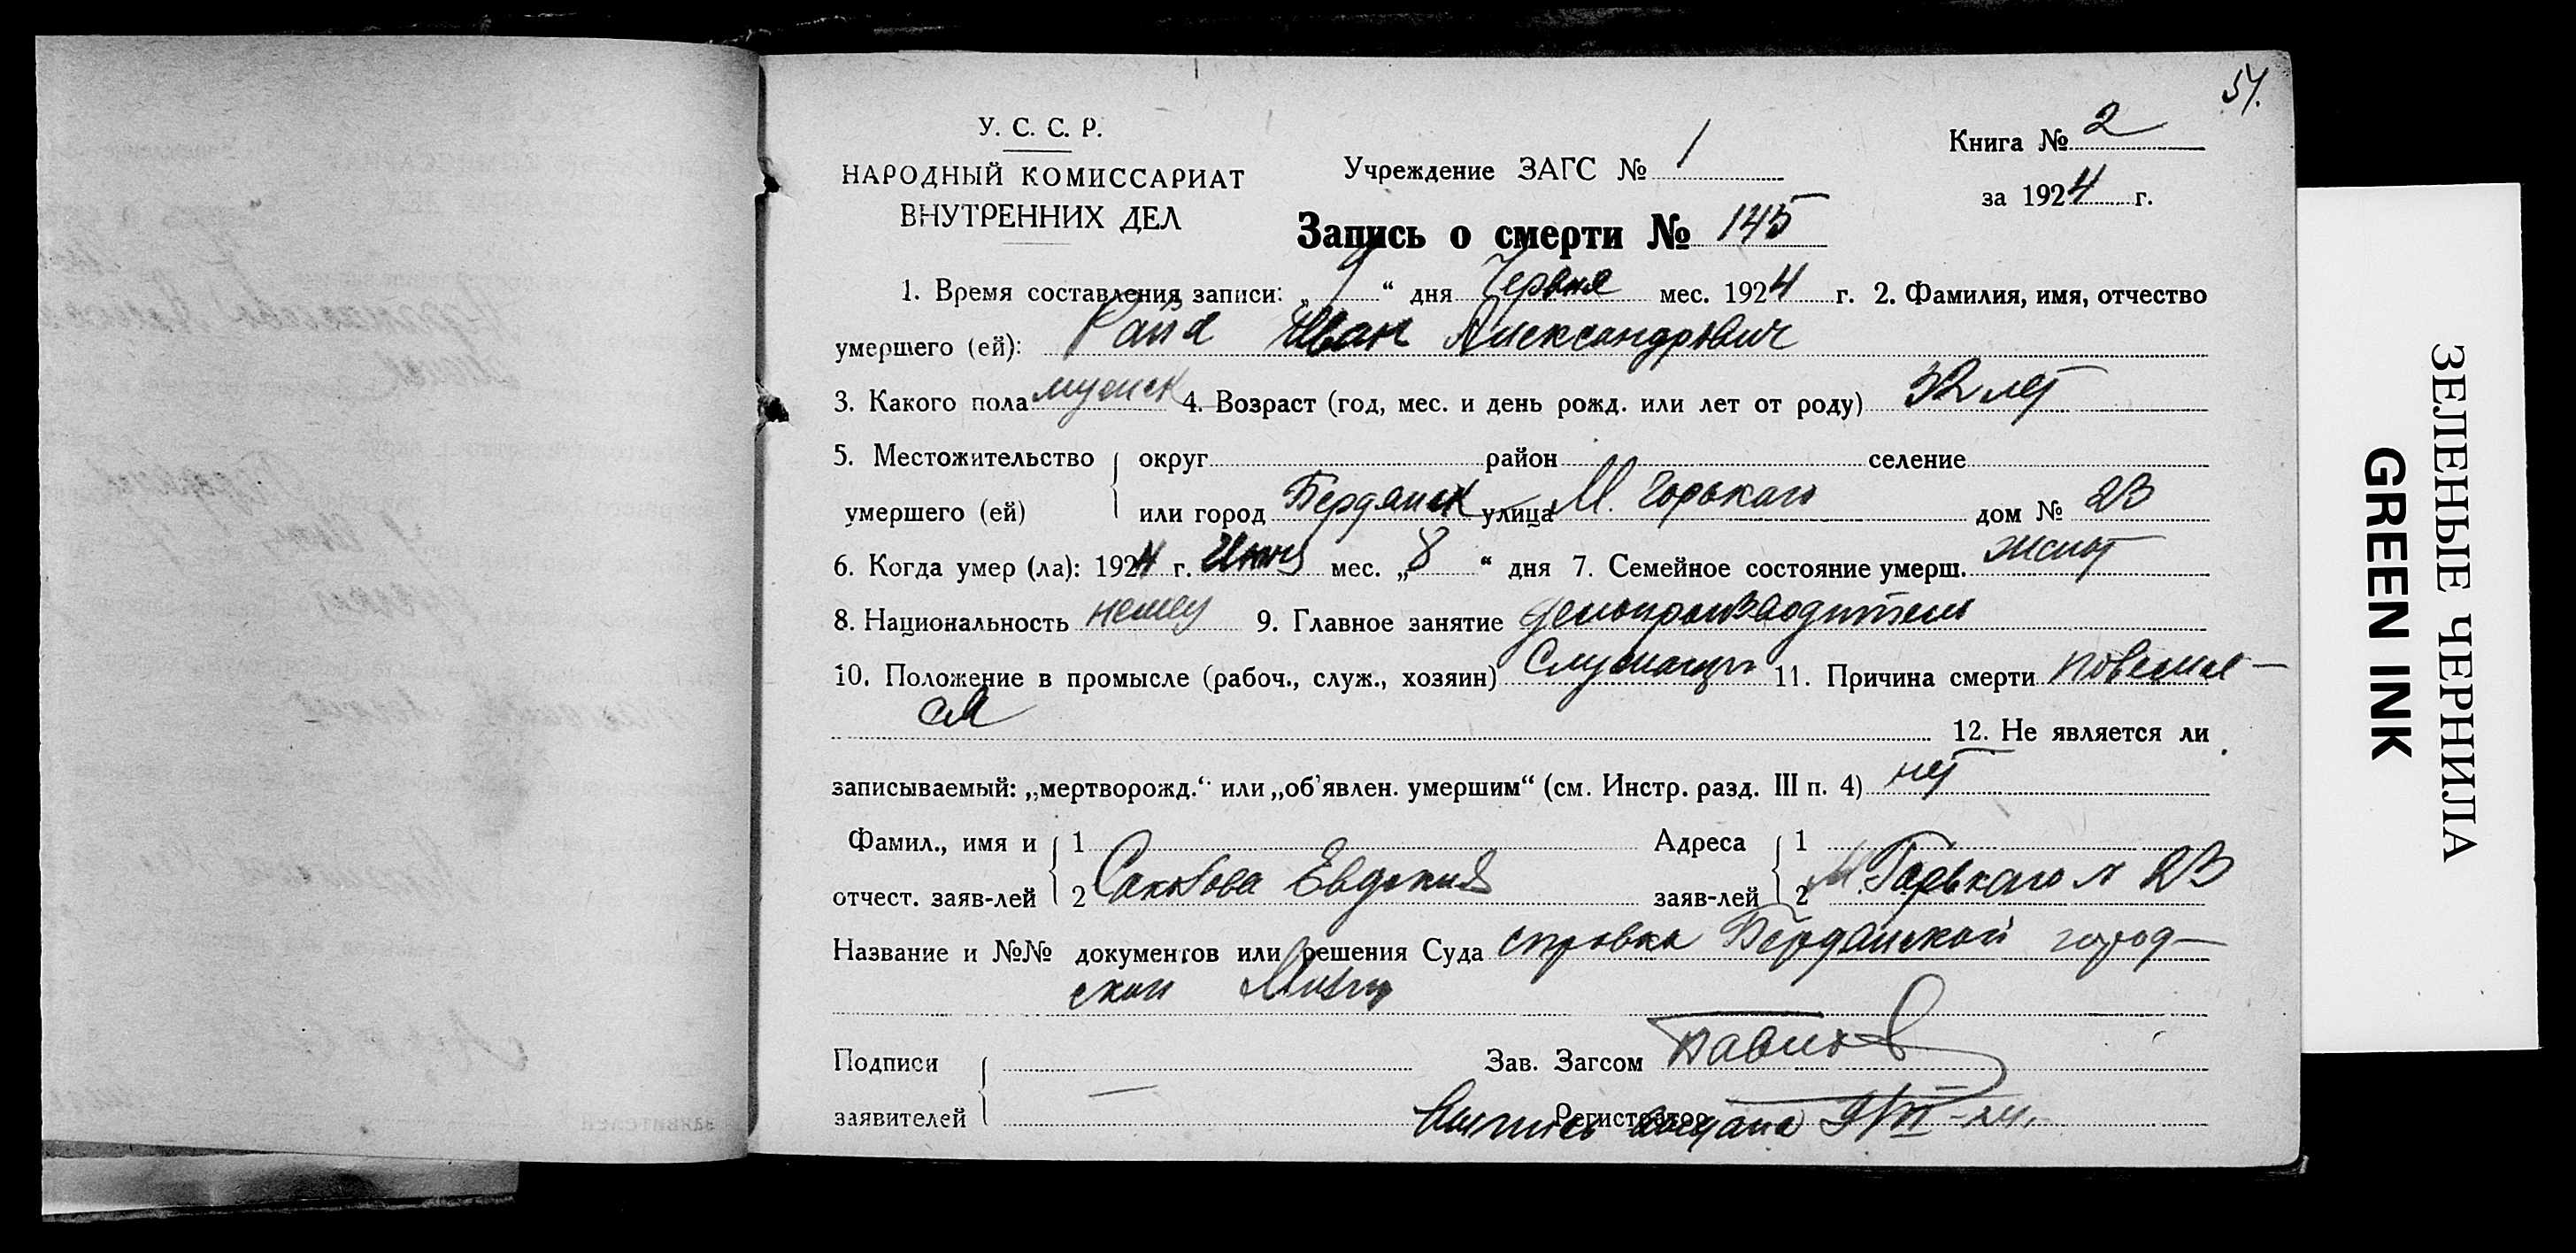 54.
У. С. С. Р.
НАРОДНЫЙ КОМИССАРИАТ
ВНУТРЕННИХ ДЕЛ
Учреждение ЗАГС № 1
Книга № 2
за 1924 г.
Запись о смерти № 145
1. Время составления записи: „9“ дня Червня мес. 1924 г. 2. Фамилия, имя, отчество
умершего (ей): Иван Александрович
3. Какого пола мужск 4. Возраст (год, мес. и день рожд. или лет от роду) 32 лет
5. Местожительство округ район селение
умершего (ей) или город Бердянск улица М. Горькаго дом № 23
6. Когда умер (ла): 1924 г. Июня мес. „8“ дня 7. Семейное состояние умерш.
8. Национальность немец 9. Главное занятие делопроизводитель
10. Положение в промысле (рабоч., служ., хозяин) Служащий 11. Причина смерти повесил-
ся
12. Не является ли
записываемый: „мертворожд.“ или „об'явлен. умершим“ (см. Инстр. разд. III п. 4) нет
Фамил., имя и 1 Адреса 1
отчест. заяв-лей 2 Евдокия заяв-лей 2 М. Горькаго № 23
Название и №№ документов или решения Суда справка Бердянской город-
ской
Подписи
заявителей —
Зав. Загсом
Регистратор
Выпись выдана 9/VI-24.
ЗЕЛЕНЫЕ ЧЕРНИЛА
GREEN INK